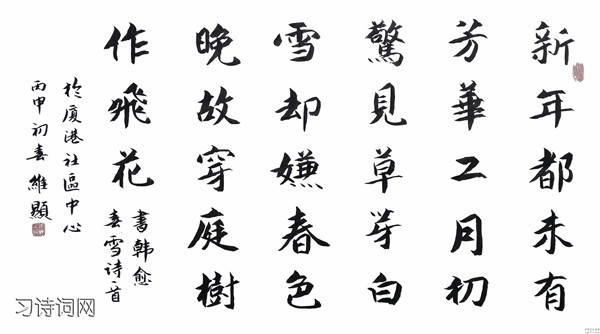 新年都未有
芳華二月初
驚見草芽白
雪却嫌春色
晚故穿庭樹
作飛花
書韓愈
春雪诗一首
於廈港社區中心
丙申初春維顯
习诗词网